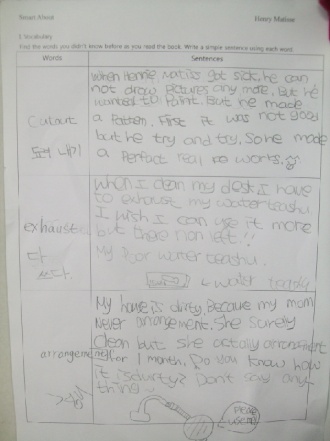 Smart About
Henry Matisse
3. Vocabulary
Find the words you didn't know before as you read the book. Write a simple sentence using each word.
Words
Sentences
Cutout
When Hennie Matiss got sick, he can
not draw pictures any more. But he
wanted to Paint. But he made
a Patten. First it was not good
but he try and try, So he made
a Perfect real works.
exhaust
다
쓰다.
When I clean my desk I have
to exhaust my water tissu.
I wish I can use it more
but there non left!!
My Poor water tissu.
← water
arrangement
My house is dirty. Because my mom
Never arrangement. She Surely
Clean but she actually arrangement
for 1 month. Do you know how
it is dirty? Don't say any
thing